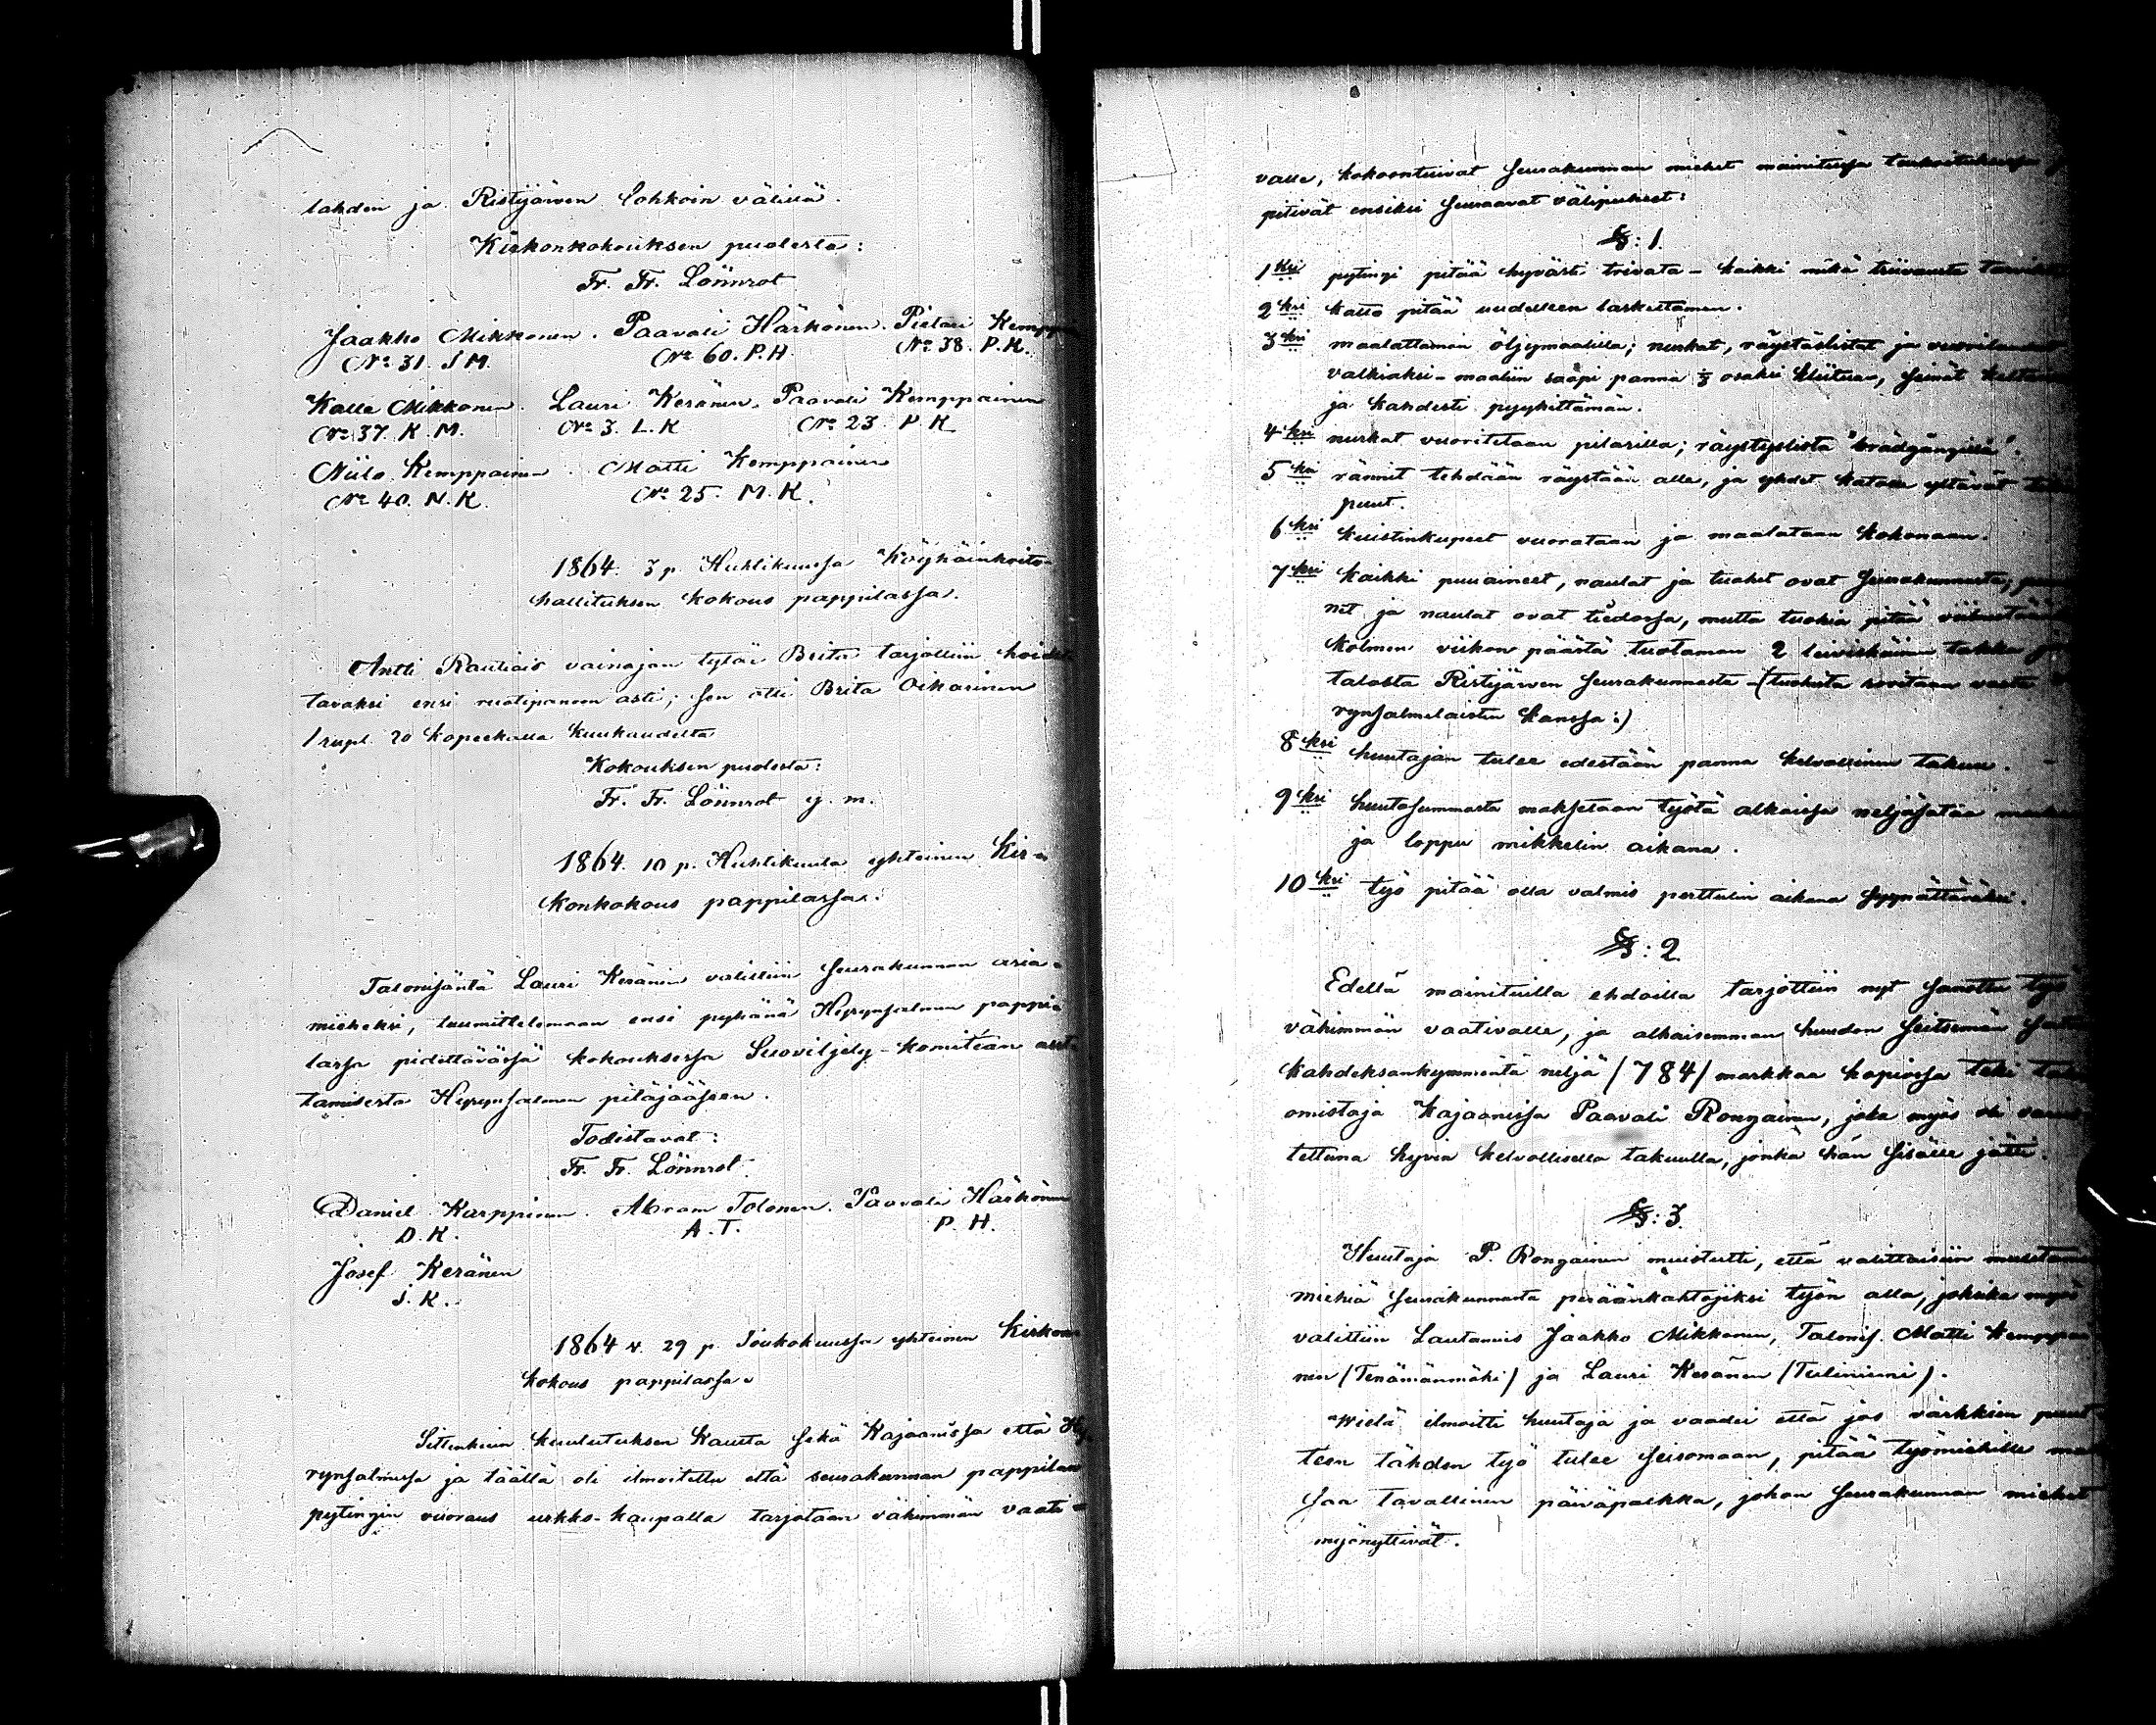 lahden ja Ristijärven lohkoin välillä.
Kirkonkokouksen puolesta:
Fr. Fr. Lönnrot
Jaakko Mikkonen. Paavali Härkönen. Pietari
No 31. J M. No 60. P. H. No 38. P. K.
Kalle Mikkonen. Lauri Keränen. Paavali Kemppainen
No 37. K. M. No 3. L. K No 23. P. K
Niilo Kemppainen. Matti Kemppainen
No 40. N. K. No 25. M. K.
1864. 3 p. Huhtikuussa Köyhäinhoito-
hallituksen kokous pappilassa.
Antti Rautiais vainajan tytär Brita tarjottiin
tavaksi ensi ruotipanoon asti; sen otti Brita Oikarinen
1 rupl. 20 kopeekalla kuukaudelta
Kokouksen puolesta:
Fr. Fr. Lönnrot y. m.
1864. 10 p. Huhtikuuta yhteinen Kir-
konkokous pappilassa.
Talonisäntä Lauri Keränen valittiin seurakunnan asia-
mieheksi, tuumittelemaan ensi pyhänä Hyrynsalmen pappi-
lassa pidettävässä kokouksessa Suoviljely-komitéan
tamisesta Hyrynsalmen pitäjääseen.
Todistavat:
Fr. Fr. Lönnrot.
Daniel Karppinen. Abram Tolonen. Paavali Härkönen
D. K. A. T. P. H.
Josef Keränen
J. K.
1864 v. 29 p. Toukokuussa yhteinen Kirkon-
kokous pappilassa.
Sittenkuin kuulutuksen kautta sekä Kajaanissa että Hy
rynsalmessa ja täällä oli ilmoitettu että seurakunnan pappilan
pytingin vuoraus urkko-kaupalla tarjotaan vähimmän vaati-
valle, kokoontuivat seurakunnan miehet mainitussa
pitivät ensiksi seuraavat välipuheet:
§: 1.
1ksi pytingi pitää hyvästi trivata - kaikki mikä triivausta
2ksi katto pitää uudelleen laskettaman.
3ksi maalattaman öljymaalilla; nurkat, räystäslistat ja
valkiaksi - maaliin saapi panna 1/3 osaksi kliitua, seinät
ja kahdesti pyyhittämän.
4ksi nurkat vuoritetaan pilarilla; räystyslista "brädgångillä".
5ksi rännit tehdään räystään alle, ja yhdet katolle yltävät
puut.
6ksi kuistinkupeet vuorataan ja maalataan kokonaan.
7ksi kaikki puuaineet, naulat ja tuohet ovat seurakunnasta;
net ja naulat ovat tiedossa, mutta tuohia pitää
kolmen viikon päästä tuotaman 2 leiviskäinen takka
talosta Ristijärven seurakunnasta - (tuohista sovitaan
rynsalmelaisten kanssa:)
8ksi huutajan tulee edestään panna kelvollinen takuu.
9ksi huutosummasta maksetaan työtä alkaissa neljäsataa
ja loppu mikkelin aikana.
10ksi työ pitää olla valmis perttulin aikana syynättäväksi.
§: 2.
Edellä mainituilla ehdoilla tarjottiin nyt sanottu työ
vähimmän vaativalle, ja alhaisemman huudon seitsemän
kahdeksankymmentä neljä /784/ markkaa hopiossa teki
omistaja Kajaanissa Paavali Rongainen, joka myös oli
tettuna hyvin kelvollisella takuulla, jonka hän sisälle jätti.
§: 3.
Huutaja P. Rongainen muistutti, että valittaisiin
miehiä seurakunnasta peräänkahtojiksi työn alla, johiika myös
valittiin Lautamies Jaakko Mikkonen, Talonis. Matti
nen /Tenämänmäki/ ja Lauri Keränen /Tuliniemi/.
Wielä ilmoitti huutaja ja vaadei että jos värkkien
teen tähden työ tulee seisomaan, pitää työmiehille
saa tavallinen päiväpalkka, johon seurakunnan miehet
myönyttivät.